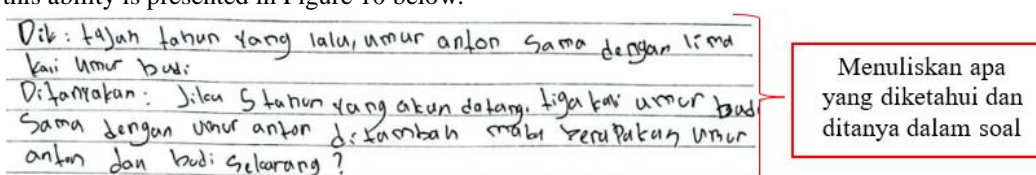 this ability is presented in Figure 10 below.
Dik : tujuh tahun yang lalu, umur anton sama dengan lima
kali umur budi
Ditanyakan : Jika 5 tahun yang akan datang. tiga kali umur budi
Sama dengan umur anton ditambah maka berapakah umur
anton dan budi sekarang ?
Menuliskan apa
yang diketahui dan
ditanya dalam soal